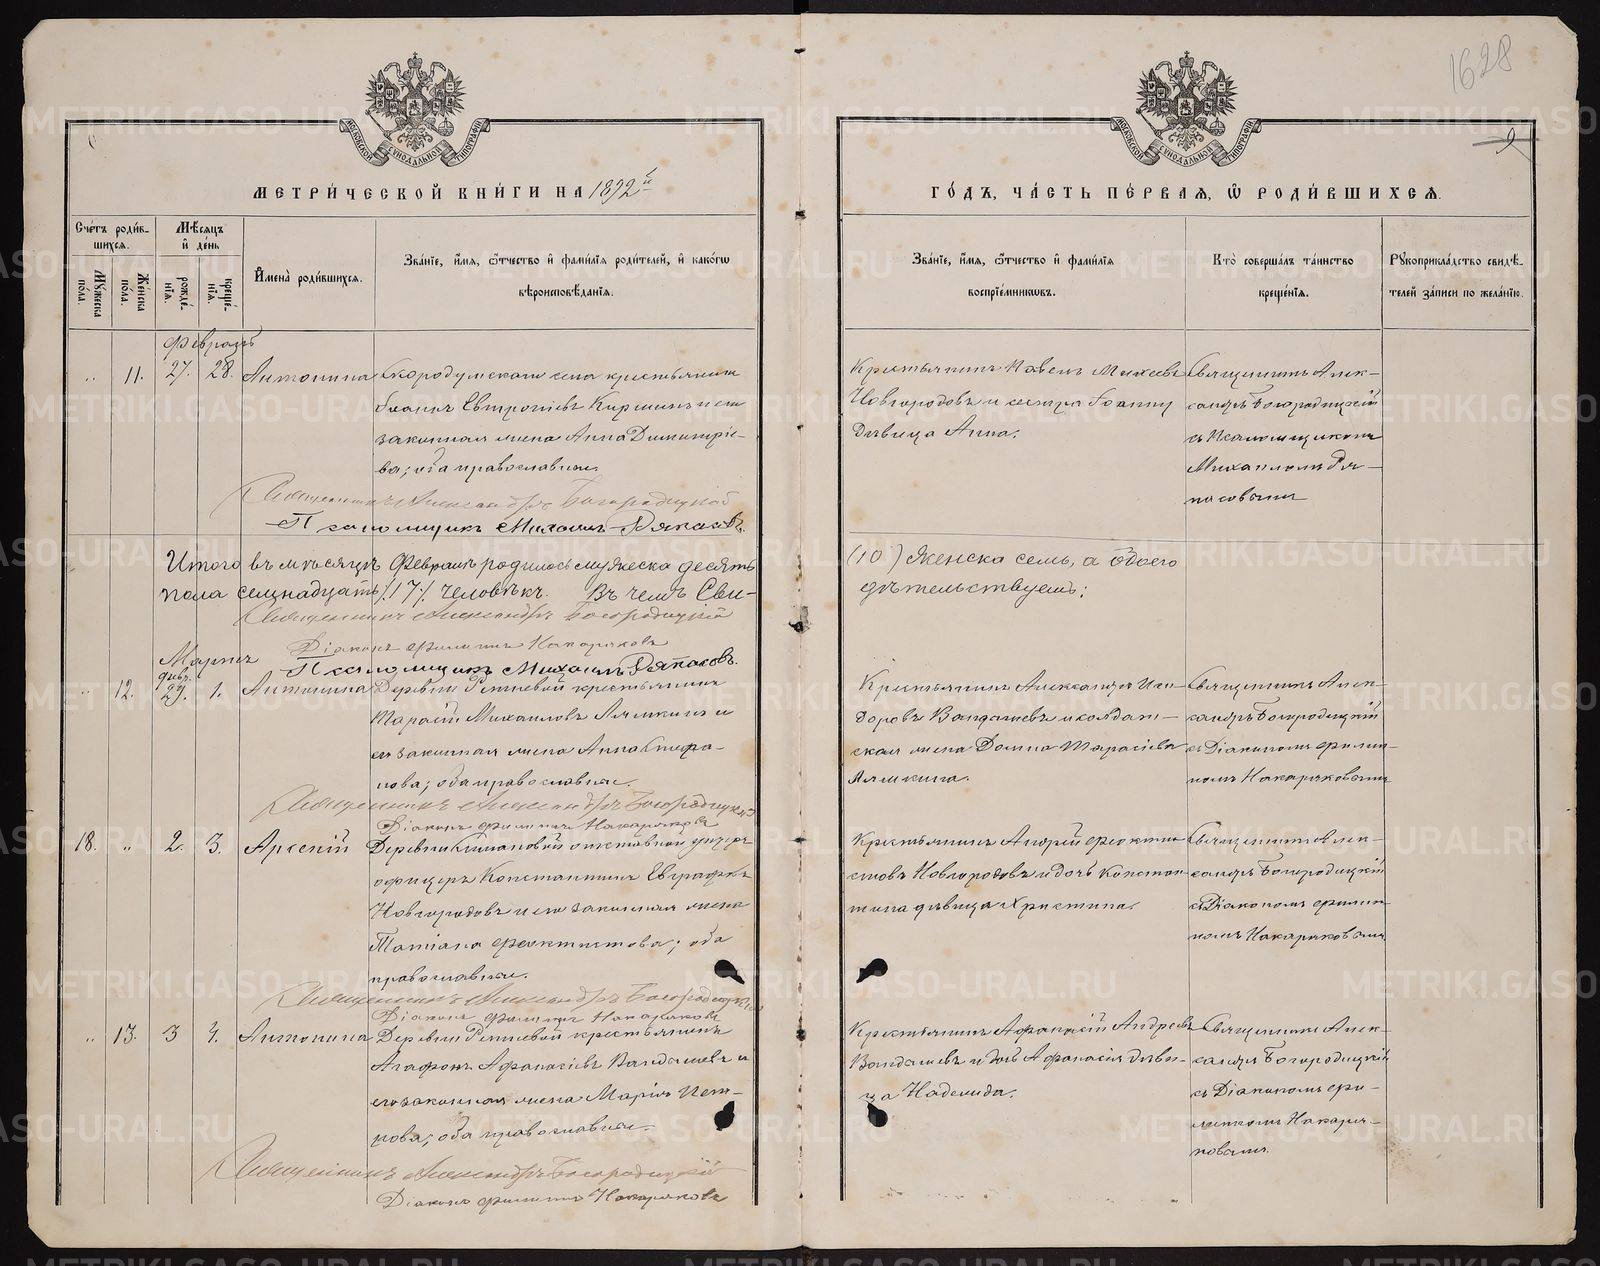 1628
9
МОСКОВСКОЙ СѴНОДАЛЬНОЙ ТИПОГРАФІИ
МОСКОВСКОЙ СѴНОДАЛЬНОЙ ТИПОГРАФІИ
МЕТРИ́ЧЕСКОЙ КНИ́ГИ НА 1892й
ГО́ДЪ, ЧА́СТЬ ПЕ́РВАЯ, Ѡ РОДИ́ВШИХСЯ.
Сче́тъ роди́в-
шихся.
Мѣ́сяцъ
и де́нь
Мꙋ́жеска по́ла.
Же́нска по́ла.
рожде́-
нїя.
креще́-
нїя.
Имена̀ роди́вшихся.
Зва́нїе, и́мя, ѻ́тчество и фами́лїя роди́телей, и како́гѡ
вѣроисповѣ́данїя.
Зва́нїе, и́мя, ѻ́тчество и фами́лїя
воспрїе́мниковъ.
Кто̀ соверша́лъ та́инство
креще́нїя.
Рꙋкоприкла́дство свидѣ́-
телей за́писи по жела́нїю.
Февраль
„ 11. 27. 28. Антонина
Скородумскаго села крестьянинъ
Іоаннъ Евтропіевъ Киршинъ и его
законная жена Анна Димитріе-
ва; оба православные.
Священникъ Александръ Богородицкій
Псаломщикъ Михаилъ Ряпасовъ.
Крестьянинъ Павелъ Михеевъ
Новгородовъ и сестра Іоанну
дѣвица Анна.
Священникъ Алек-
сандръ Богородицкій
съ Псаломщикомъ
Михаиломъ Ря-
пасовымъ
Итого въ мѣсяцѣ Февралѣ родилось мужеска десять
(10) Женска семь, а обоего
пола семнадцать /17/ человѣкъ. Въ чемъ Сви-
дѣтельствуемъ:
Священникъ Александръ Богородицкій
Діаконъ Филиппъ Накаряковъ
Псаломщикъ Михаилъ Ряпасовъ.
Мартъ
февр.
„ 12. 29. 1. Антонина
Деревни Ретневой крестьянинъ
Тарасій Михаиловъ Лямкинъ и
его законная жена Анна
нова; оба православные.
Священникъ Александръ Богородицкій
Діаконъ Филиппъ Накаряковъ
Крестьянинъ Александръ Иси-
доровъ Вандышевъ и солдат-
ская жена Домна Тарасіева
Лямкина.
Священникъ Алек-
сандръ Богородицкій
съ Діакономъ Филип-
помъ Накаряковымъ
18. „ 2. 3. Арсеній
Деревни отставной унтеръ
офицеръ Константинъ Евграфовъ
Новгородовъ и его законная жена
Татіана Феоктистова; оба
православные.
Священникъ Александръ Богородицкій
Діаконъ Филиппъ Накаряковъ
Крестьянинъ Андрей Феокти-
стовъ Новгородовъ и дочь Констан-
тина дѣвица Христина.
Священникъ Алек-
сандръ Богородицкій
съ Діакономъ Филип-
помъ Накаряковымъ
„ 13. 3 4. Антонина
Деревни Ретневой крестьянинъ
Агафонъ Афанасіевъ Вандышевъ и
его законная жена Марія Пет-
рова; оба православные.
Священникъ Александръ Богородицкій
Діаконъ Филиппъ Накаряковъ
Крестьянинъ Афанасій Андреевъ
Вандышевъ и дочь Афанасія дѣви-
ца Надежда.
Священникъ Алек-
сандръ Богородицкій
съ Діакономъ Фи-
липпомъ Накаря-
ковымъ.
METRIKI.GASO-URAL.RU